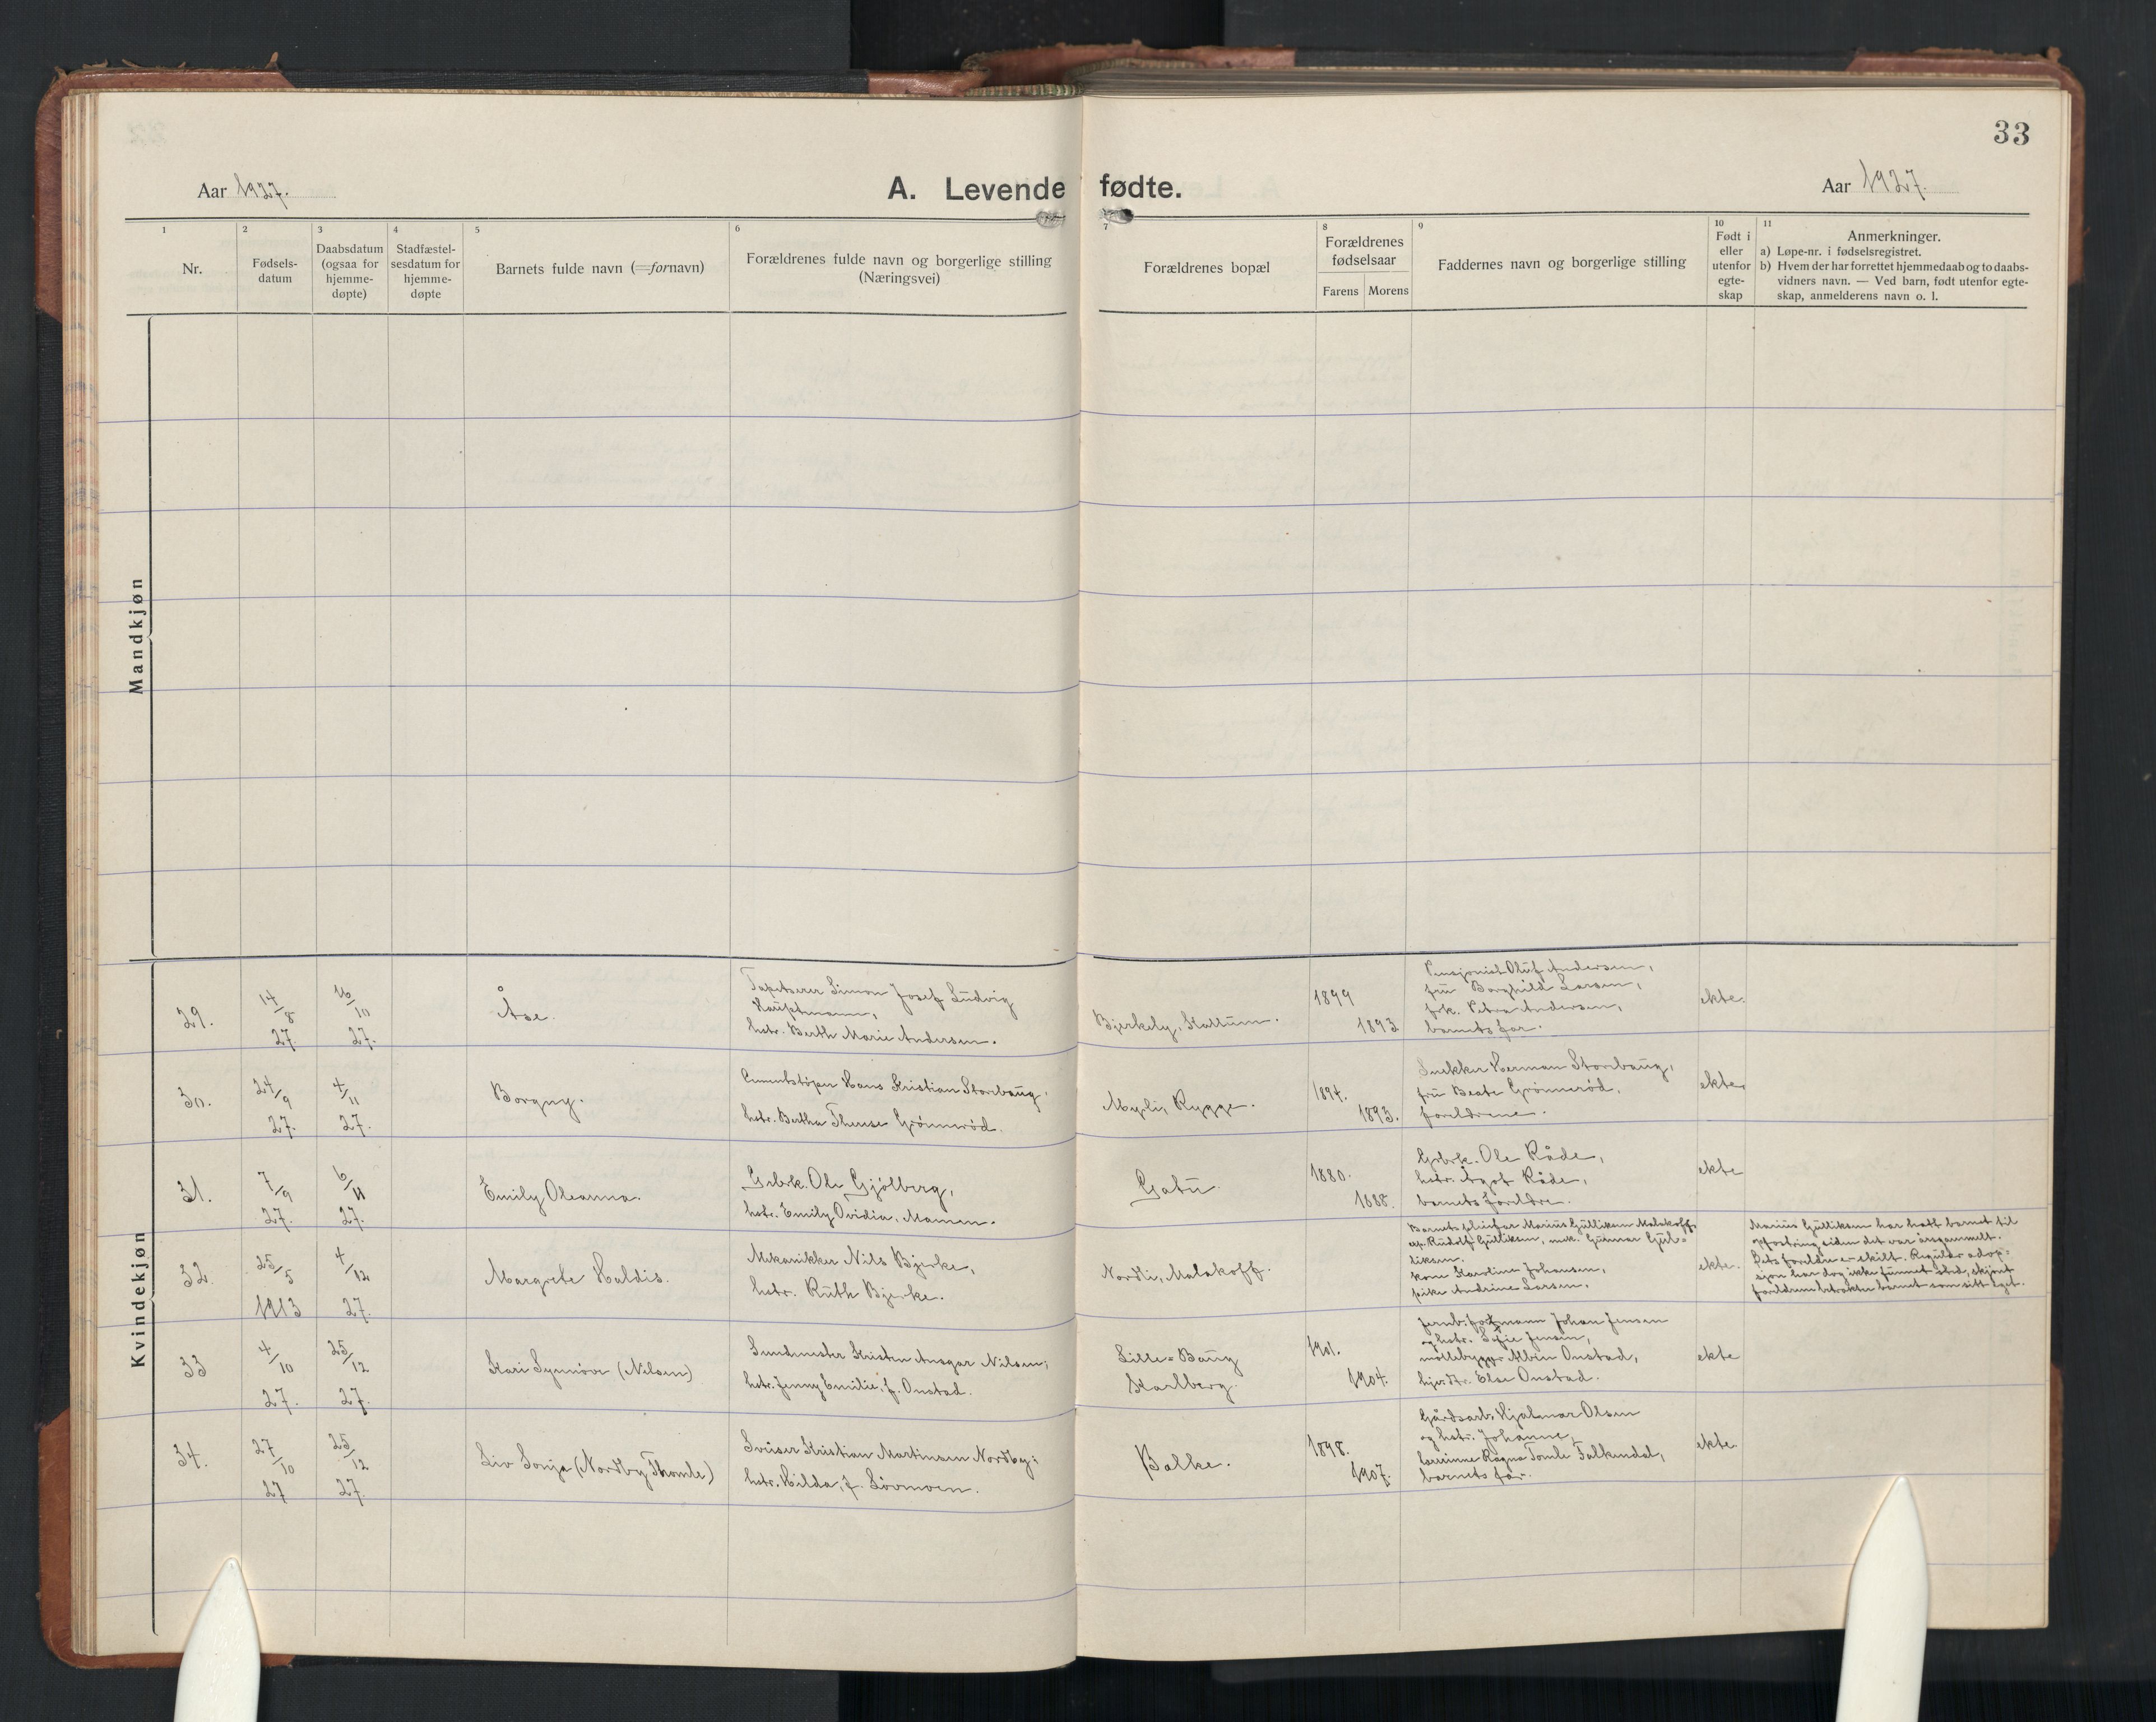 33
Aar 1927.
A. Levende fødte.
Aar 1927.
1
2
3
4
5
6
7
8
9
10
11
Nr.
Fødsels-
datum
Daabsdatum
(ogsaa for
hjemme-
døpte)
Stadfæstel-
sesdatum for
hjemme-
døpte
Barnets fulde navn (=fornavn)
Forældrenes fulde navn og borgerlige stilling
(Næringsvei)
Forældrenes bopæl
Forældrenes
fødselsaar
Farens Morens
Faddernes navn og borgerlige stilling
Født i
eller
utenfor
egte-
skap
Anmerkninger.
a) Løpe-nr. i fødselsregistret.
b) Hvem der har forrettet hjemmedaab og to daabs-
vidners navn. — Ved barn, født utenfor egte-
skap, anmelderens navn o. l.
Mandkjøn
Kvindekjøn
29.
14/8
27.
16/10
27.
Åse.
Tapetserer Simon Josef Ludvig
Hauptmann,
hstr. Berth Marie Andersen.
Bjerkely, Kattum.
1899
1893
Pensjonist Oluf Andersen,
fru Borghild Larsen,
frk. Petra Andersen,
barnets far.
ekte.
30.
24/9
27.
4/11
27.
Borgny.
Cementstøper Hans Kristian Storebaug,
hstr. Bertha Therese Grønnerød.
Myrli, Rygge.
1894.
1893.
Snekker Herman Storebaug,
fru Beate Grønnerød,
foreldrene.
ekte
31.
7/9
27.
6/11
27.
Emily Oleanna.
Grbrk. Ole Gjølberg,
hstr. Emily Ovidia, Mamen.
Gatu.
1880.
1888.
Grbrk. Ole Råde,
hstr. Ågot Råde,
barnets foreldre.
ekte
32.
25/5
1913
4/12
27.
Margrete Haldis.
Mekanikker Nils Bjerke,
hstr. Ruth Bjerke.
Nordli, Malakoff.
Barnets pleiefar Marius Gulliksen Malakoff,
ap. Rudolf Gulliksen, mek. Gunnar Gul=
liksen.
kone Karoline Johansen,
pike Andrine Larsen.
ekte.
Marius Gulliksen har hatt barnet til
opfostring siden det var årsgammelt.
Dets foreldre er skilt. Regulær adop=
sjon har dog ikke funnet sted, skjønt
foreldrene betrakter barnet som sitt eget.
33
4/10
27.
25/12
27.
Kari Synnøve (Nilsen)
Sundmester Kristen Ansgar Nilsen,
hstr. Jenny Emilie, f. Onstad.
Lille=Baug
Karlberg.
1901.
1904.
Jernb.formann Johan Jensen
og hstr. Sofie Jensen,
møllebygger Albin Onstad,
hjv. dtr. Else Onstad.
ekte
34.
27/10
27
25/12
27.
Liv Sonja (Nordby Thomle)
Sveiser Kristian Martinsen Nordby;
hstr. Hilda, f. Løvmoen.
Balke.
1898.
1907.
Gårdsarb. Hjalmar Olsen
og hstr. Johanne,
lærerinne Ragna Tomle Falkendal,
barnets far.
ekte